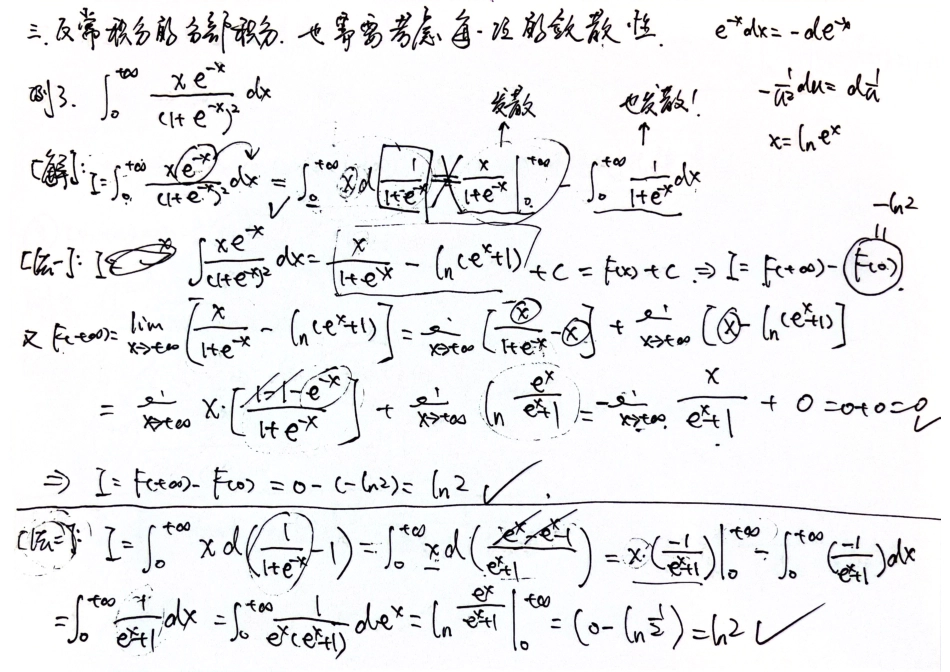 三.反常积分的分部积分.也需要考虑每一项的敛散性. e^{-x}dx=-de^{-x}
例3. ∫_0^{+∞} \frac{xe^{-x}}{(1+e^{-x})^2}dx 发散 也发散! -\frac{1}{u^2}du=d\frac{1}{u}
x=ln e^x
[解]: I=∫_0^{+∞} \frac{xe^{-x}}{(1+e^{-x})^2}dx = ∫_0^{+∞} x d\frac{1}{1+e^{-x}} = \frac{x}{1+e^{-x}}|_0^{+∞} - ∫_0^{+∞} \frac{1}{1+e^{-x}}dx
-ln2
[法一]: ∫\frac{xe^{-x}}{(1+e^{-x})^2}dx = \frac{x}{1+e^{-x}} - ln(e^x+1) + C = F(x)+C ⇒ I=F(+∞)-F(0)
又 F(+∞)=lim_{x→+∞}[\frac{x}{1+e^{-x}} - ln(e^x+1)] = lim_{x→+∞}[\frac{x}{1+e^{-x}} - x] + lim_{x→+∞}[x - ln(e^x+1)]
= lim_{x→+∞} x·[\frac{1-1-e^{-x}}{1+e^{-x}}] + lim_{x→+∞} ln\frac{e^x}{e^x+1} = -lim_{x→+∞}\frac{x}{e^x+1} + 0 = 0+0=0 ✓
⇒ I=F(+∞)-F(0)=0-(-ln2)=ln2 ✓
[法二]: I=∫_0^{+∞} x d(\frac{1}{1+e^{-x}}-1) = ∫_0^{+∞} x d(\frac{e^x-e^x-1}{e^x+1}) = x·(\frac{-1}{e^x+1})|_0^{+∞} - ∫_0^{+∞}(\frac{-1}{e^x+1})dx
=∫_0^{+∞}\frac{1}{e^x+1}dx = ∫_0^{+∞}\frac{1}{e^x(e^x+1)}de^x = ln\frac{e^x}{e^x+1}|_0^{+∞} = (0-ln\frac{1}{2})=ln2 ✓